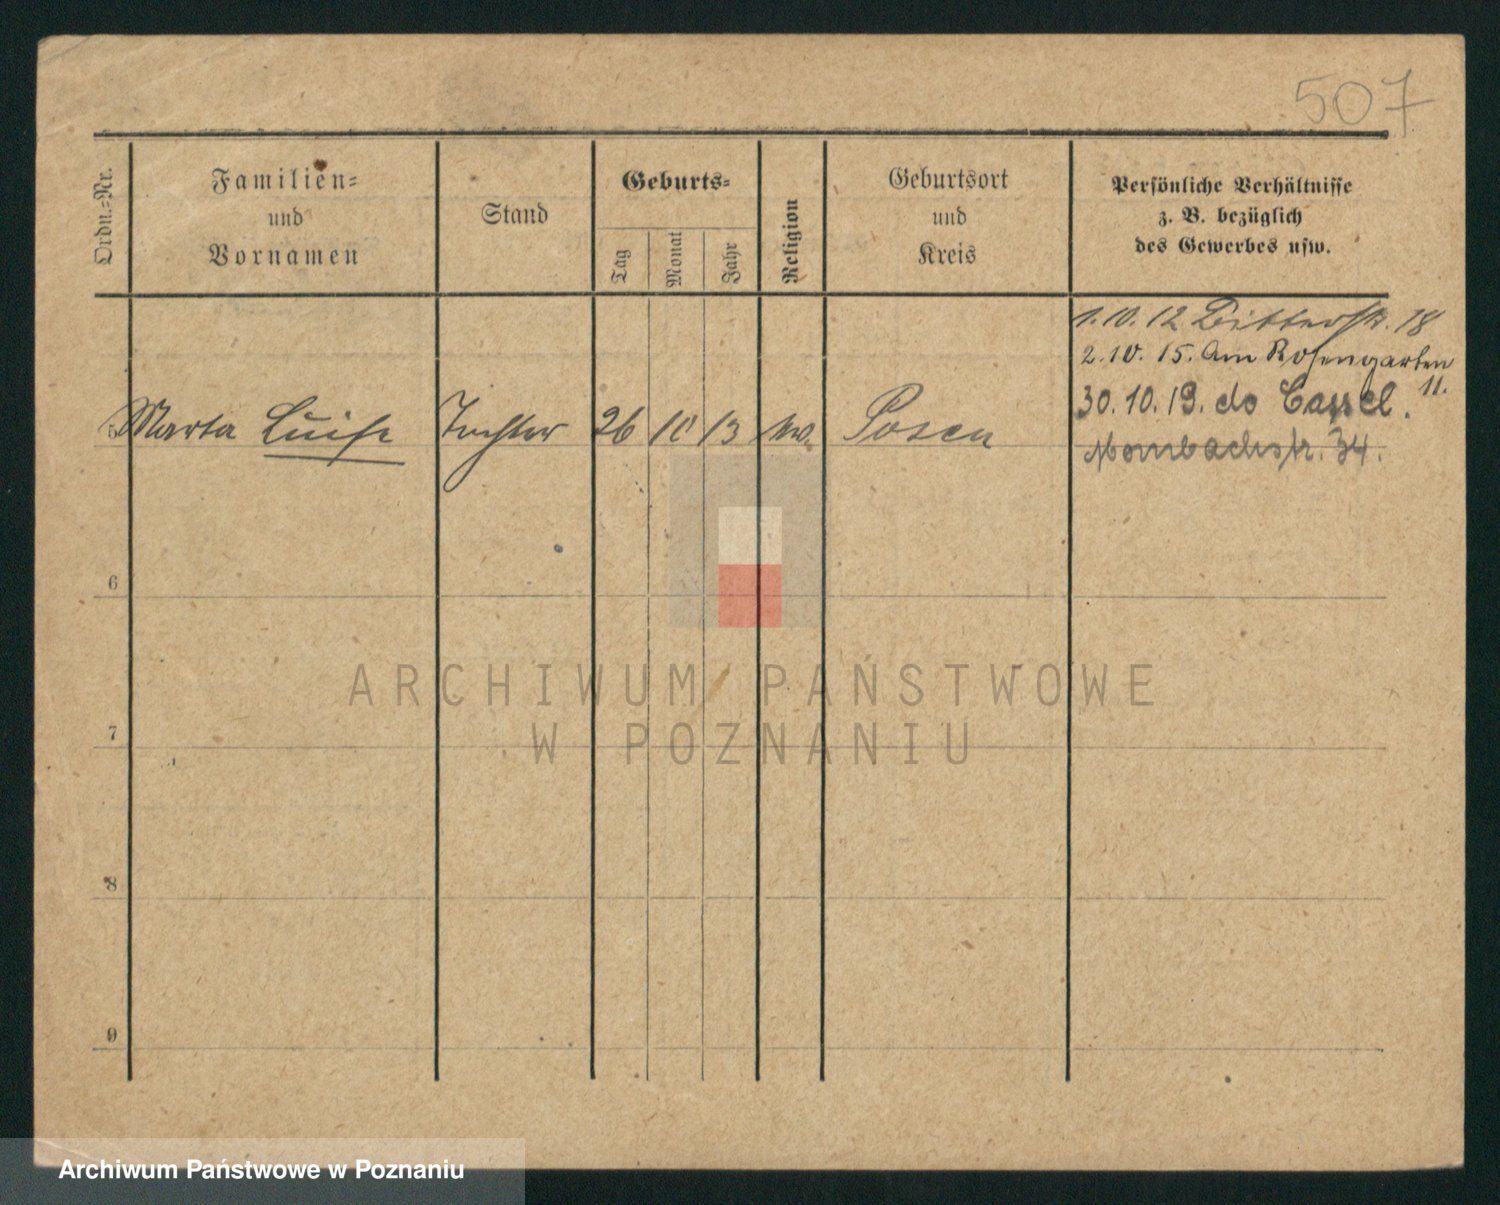 507
Ordn.-Nr.
Familien-
und
Vornamen
Stand
Geburts-
Tag
Monat
Jahr
Religion
Geburtsort
und
Kreis
Persönliche Verhältnisse
z. B. bezüglich
des Gewerbes usw.
1.10.12 Ritterstr. 18
2.10.15. Am Rosengarten
11.
30.10.19. do Cassel.
Mombachstr. 34.
5 Marta Luise Tochter 26 10 13 ev. Posen
6
7
8
9
ARCHIWUM PAŃSTWOWE
W POZNANIU
Archiwum Państwowe w Poznaniu